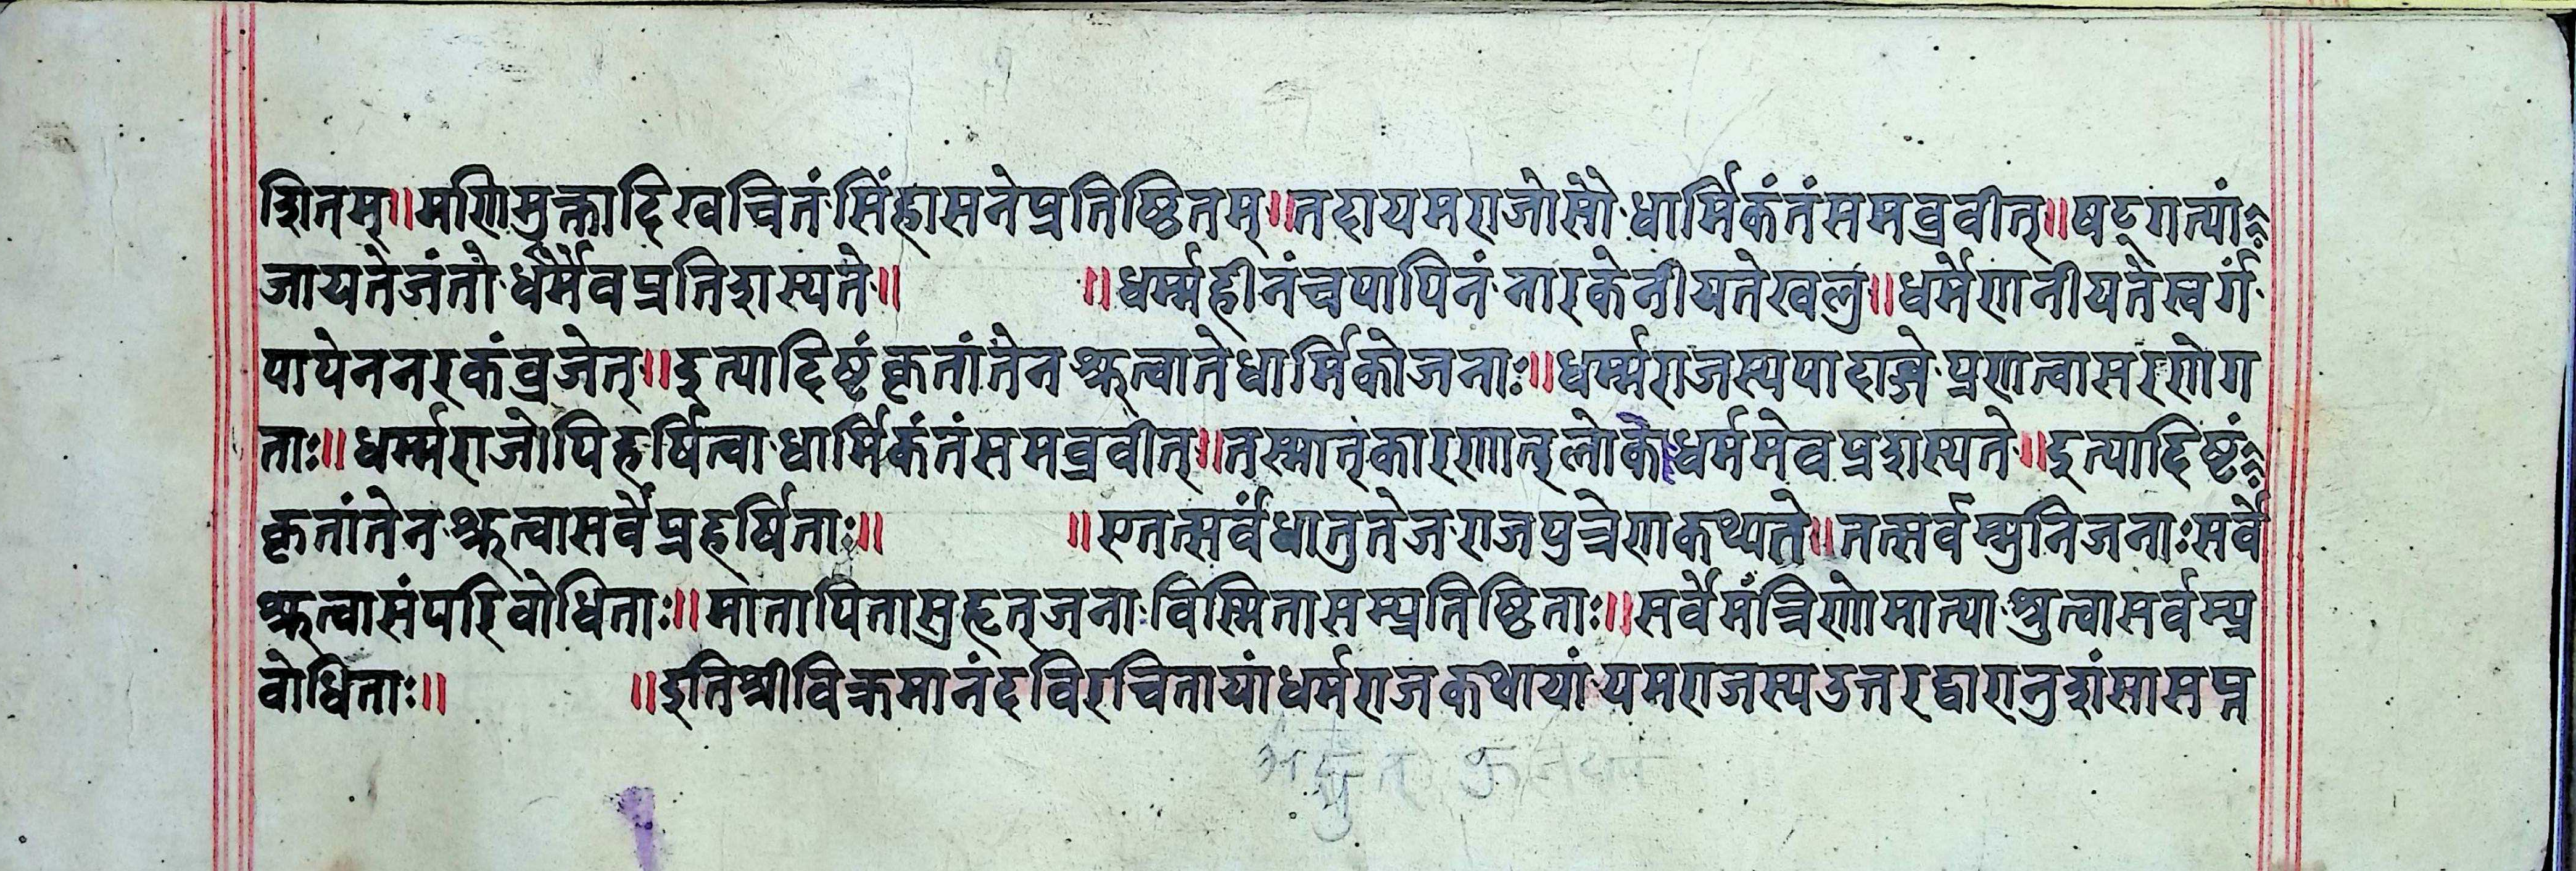 द्शितम्॥मणिमुक्तादिखचितं सिंहासनेप्रतिष्ठितम्॥तदायमराजोसो धार्मिकंतंसमब्रवीत्॥षट्गत्यां
जायतेजंतो र्धर्मैवप्रतिशस्यते॥ ॥धर्म्महीनंचपापिनं नारकेनीयतेखलु॥धर्मेणनीयतेस्वर्गं
पापेननरकंव्रजेत्॥इत्यादिष्टं कृतांतेन श्रुत्वातेधार्मिकोजनाः॥धर्म्मराजस्यपादाब्जे प्रणत्वासरणेग
ताः॥धर्म्मराजोपिहर्षित्वा धार्मिकंतंसमब्रवीत्॥तस्मात्कारणात्लोके धर्ममेवप्रशस्यते॥इत्यादिष्टं
कृतांतेन श्रुत्वासर्वेप्रहर्षिताः॥ ॥एतत्सर्वंधातुतेज राजपुत्रेणकथ्यते॥तत्सर्वम्मुनिजनाःसर्वे
श्रुत्वासंपरिवोधिताः॥मातापितासुहृत्जना विस्मितासम्प्रतिष्ठिताः॥सर्वेमंत्रिणोमात्या श्रुत्वासर्वम्प्र
वोधिताः॥ ॥इतिश्रीविक्रमानंदविरचितायांधर्मराजकथायां यमराजस्यउत्तरद्वारानुशंसासप्त